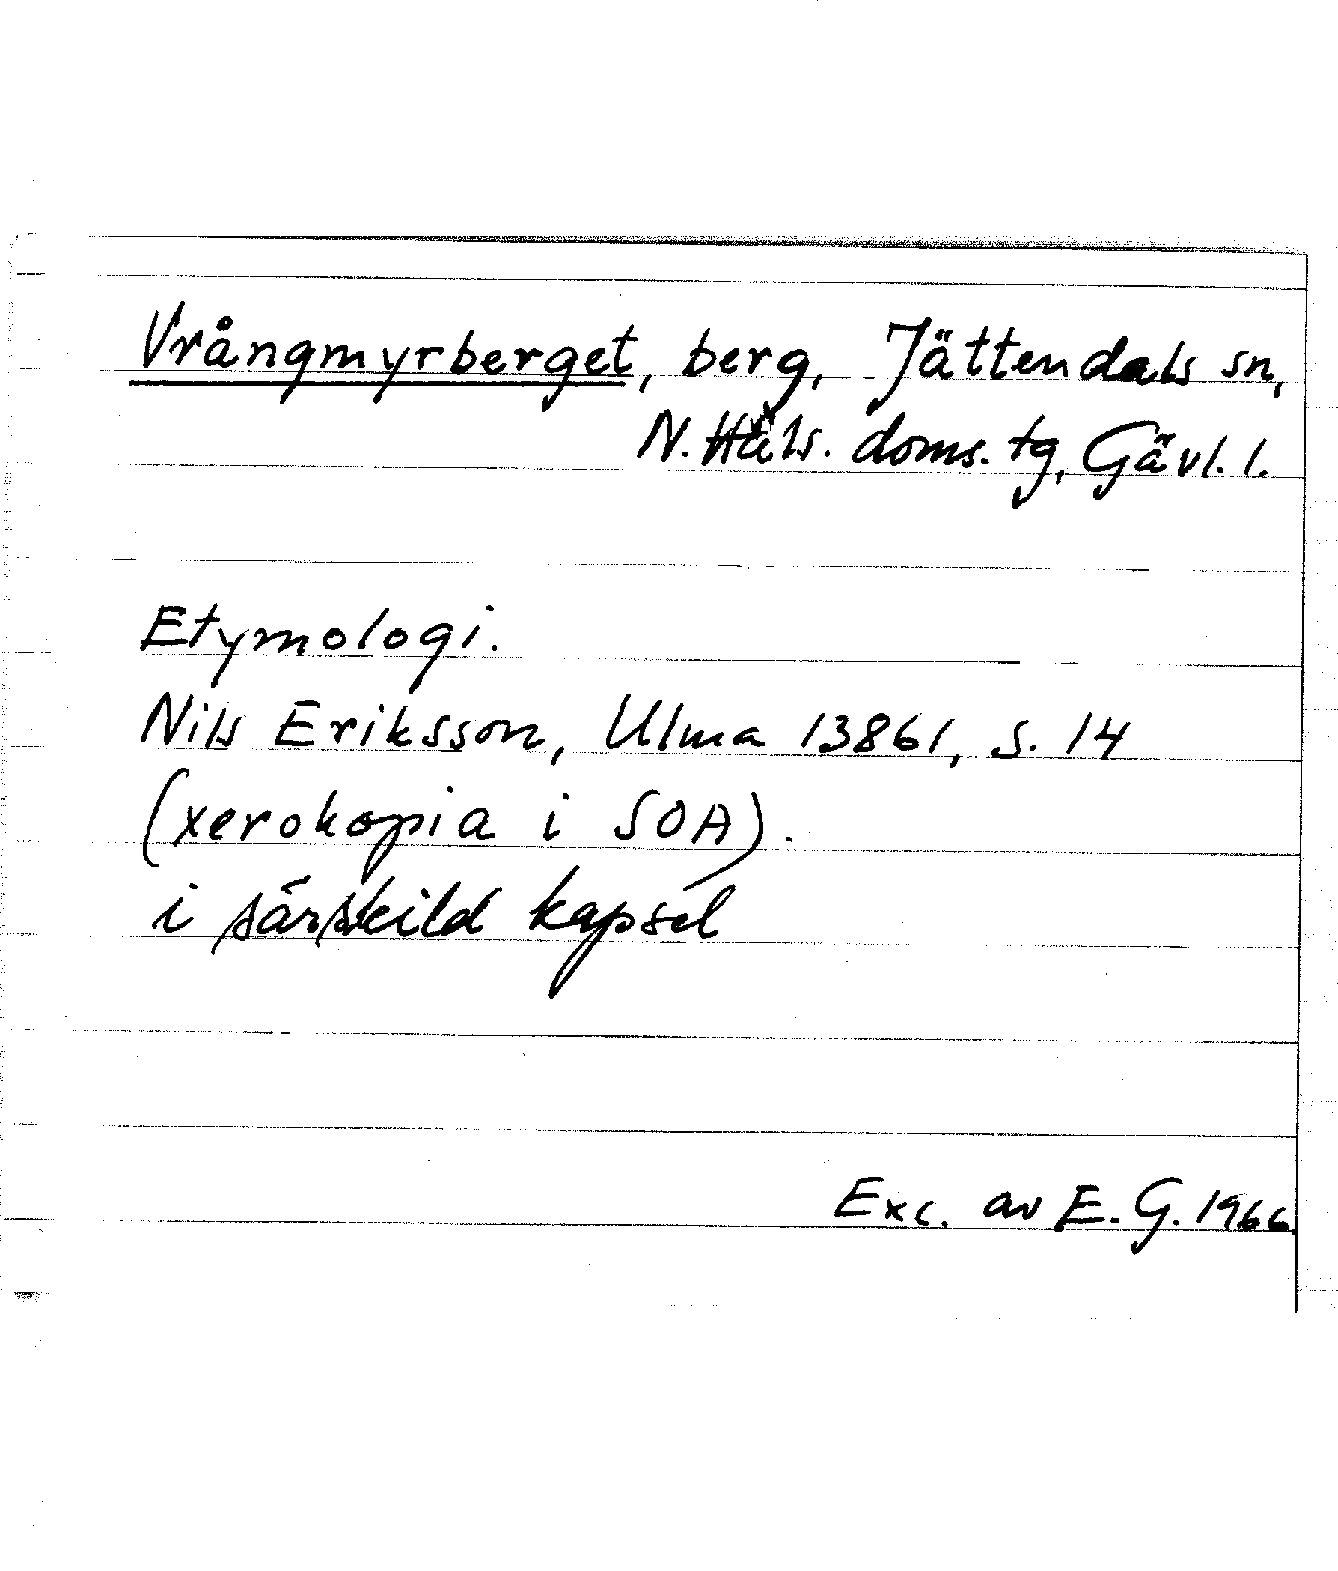 Vrångmyrberget, berg, Jättendals sn,
N. Häls. doms. tg, Gävl. l.
Etymologi.
Nils Eriksson, Ulma 13861, s. 14
(xerokopia i SOA).
i särskild kapsel
Exc. av E. G. 1966.